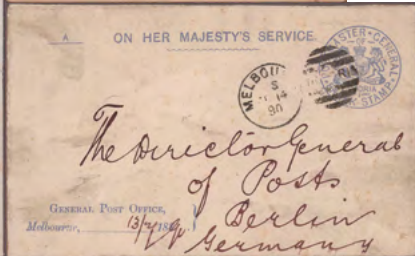 A ON HER MAJESTY'S SERVICE.
MASTER-GENERAL
STAMP
MELBOU
S
14
90
The Director General
of Posts
Berlin
Germany
GENERAL POST OFFICE,
Melbourne, 13/2/90